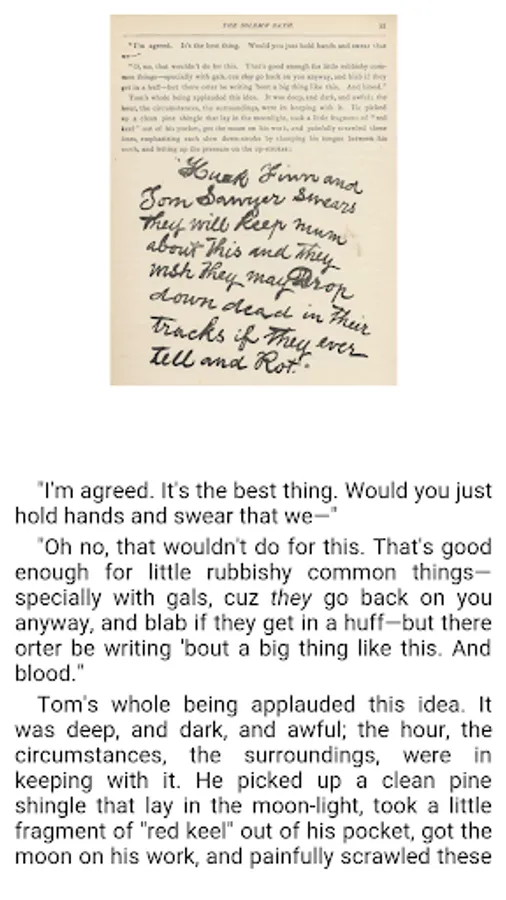 THE SOLEMN OATH.
"I'm agreed. It's the best thing. Would you just hold hands and swear that
we—"
"O, no, that wouldn't do for this. That's good enough for little rubbishy com-
mon things—specially with gals, cuz they go back on you anyway, and blab if they
get in a huff—but there orter be writing 'bout a big thing like this. And blood."
Tom's whole being applauded this idea. It was deep, and dark, and awful; the
hour, the circumstances, the surroundings, were in keeping with it. He picked
up a clean pine shingle that lay in the moonlight, took a little fragment of "red
keel" out of his pocket, got the moon on his work, and painfully scrawled these
lines, emphasizing each slow down-stroke by clamping his tongue between his
teeth, and letting up the pressure on the up-strokes:
"Huck Finn and
Tom Sawyer Swears
They will Keep mum
about This and They
wish They may Drop
down dead in Their
tracks if They ever
tell and Rot."
"I'm agreed. It's the best thing. Would you just
hold hands and swear that we—"
"Oh no, that wouldn't do for this. That's good
enough for little rubbishy common things—
specially with gals, cuz they go back on you
anyway, and blab if they get in a huff—but there
orter be writing 'bout a big thing like this. And
blood."
Tom's whole being applauded this idea. It
was deep, and dark, and awful; the hour, the
circumstances, the surroundings, were in
keeping with it. He picked up a clean pine
shingle that lay in the moon-light, took a little
fragment of "red keel" out of his pocket, got the
moon on his work, and painfully scrawled these